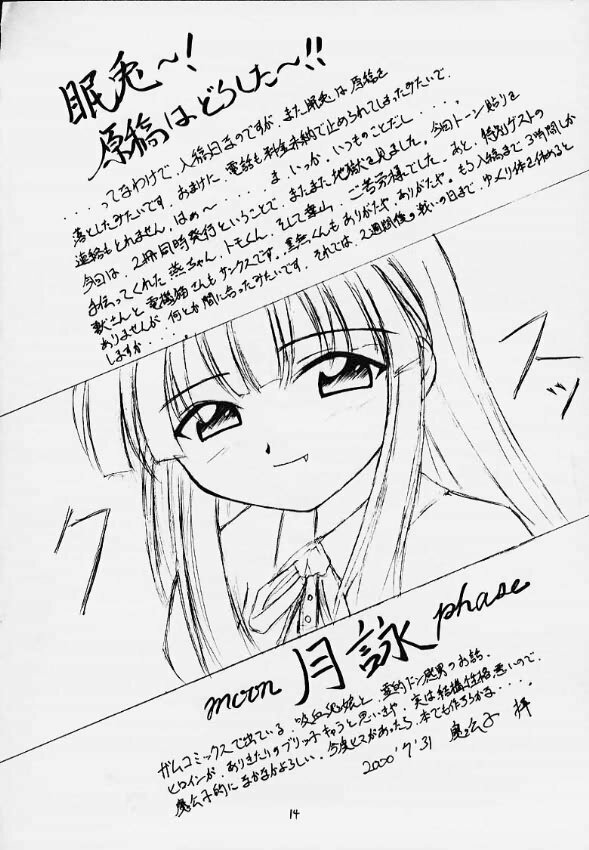 眠兎～!
原稿はどうした～!!
・・・・ってなわけで、入稿日まのですが、また眠兎は原稿を
落としたみたいです。おまけに、電話も料金未納で止められてしまったみたいで、
連絡もとれません。はぁ～・・・・ま、いっか。いつものことだし・・・・。
今回は、2冊同時発行ということで、またまた地獄を見ました。今回トーン貼りを
手伝ってくれた葵ちゃん、トモくん、そして 山、ご苦労様でした。あと、特別ゲストの
猷さんと電機猫さんもサンクスです。黒無くんもありがたや、ありがたや。もう入稿まで3時間しか
ありませんが、何とか間に合ったみたいです。それでは、2週間後の戦いの日まで、ゆっくり体を休めると
しますか・・・・。
フッ
ク
moon 月詠 phase
ガムコミックスで出ている、吸血鬼娘と、霊的ドン感男のお話。
ヒロインが、ありきたりのブリッ子キャラと思いきや、実は結構性格悪いので、
公子的になかなかよろしい。今度ヒマがあったら、本でも作ろうかな・・・。
2000'7'31 公子 拝
14